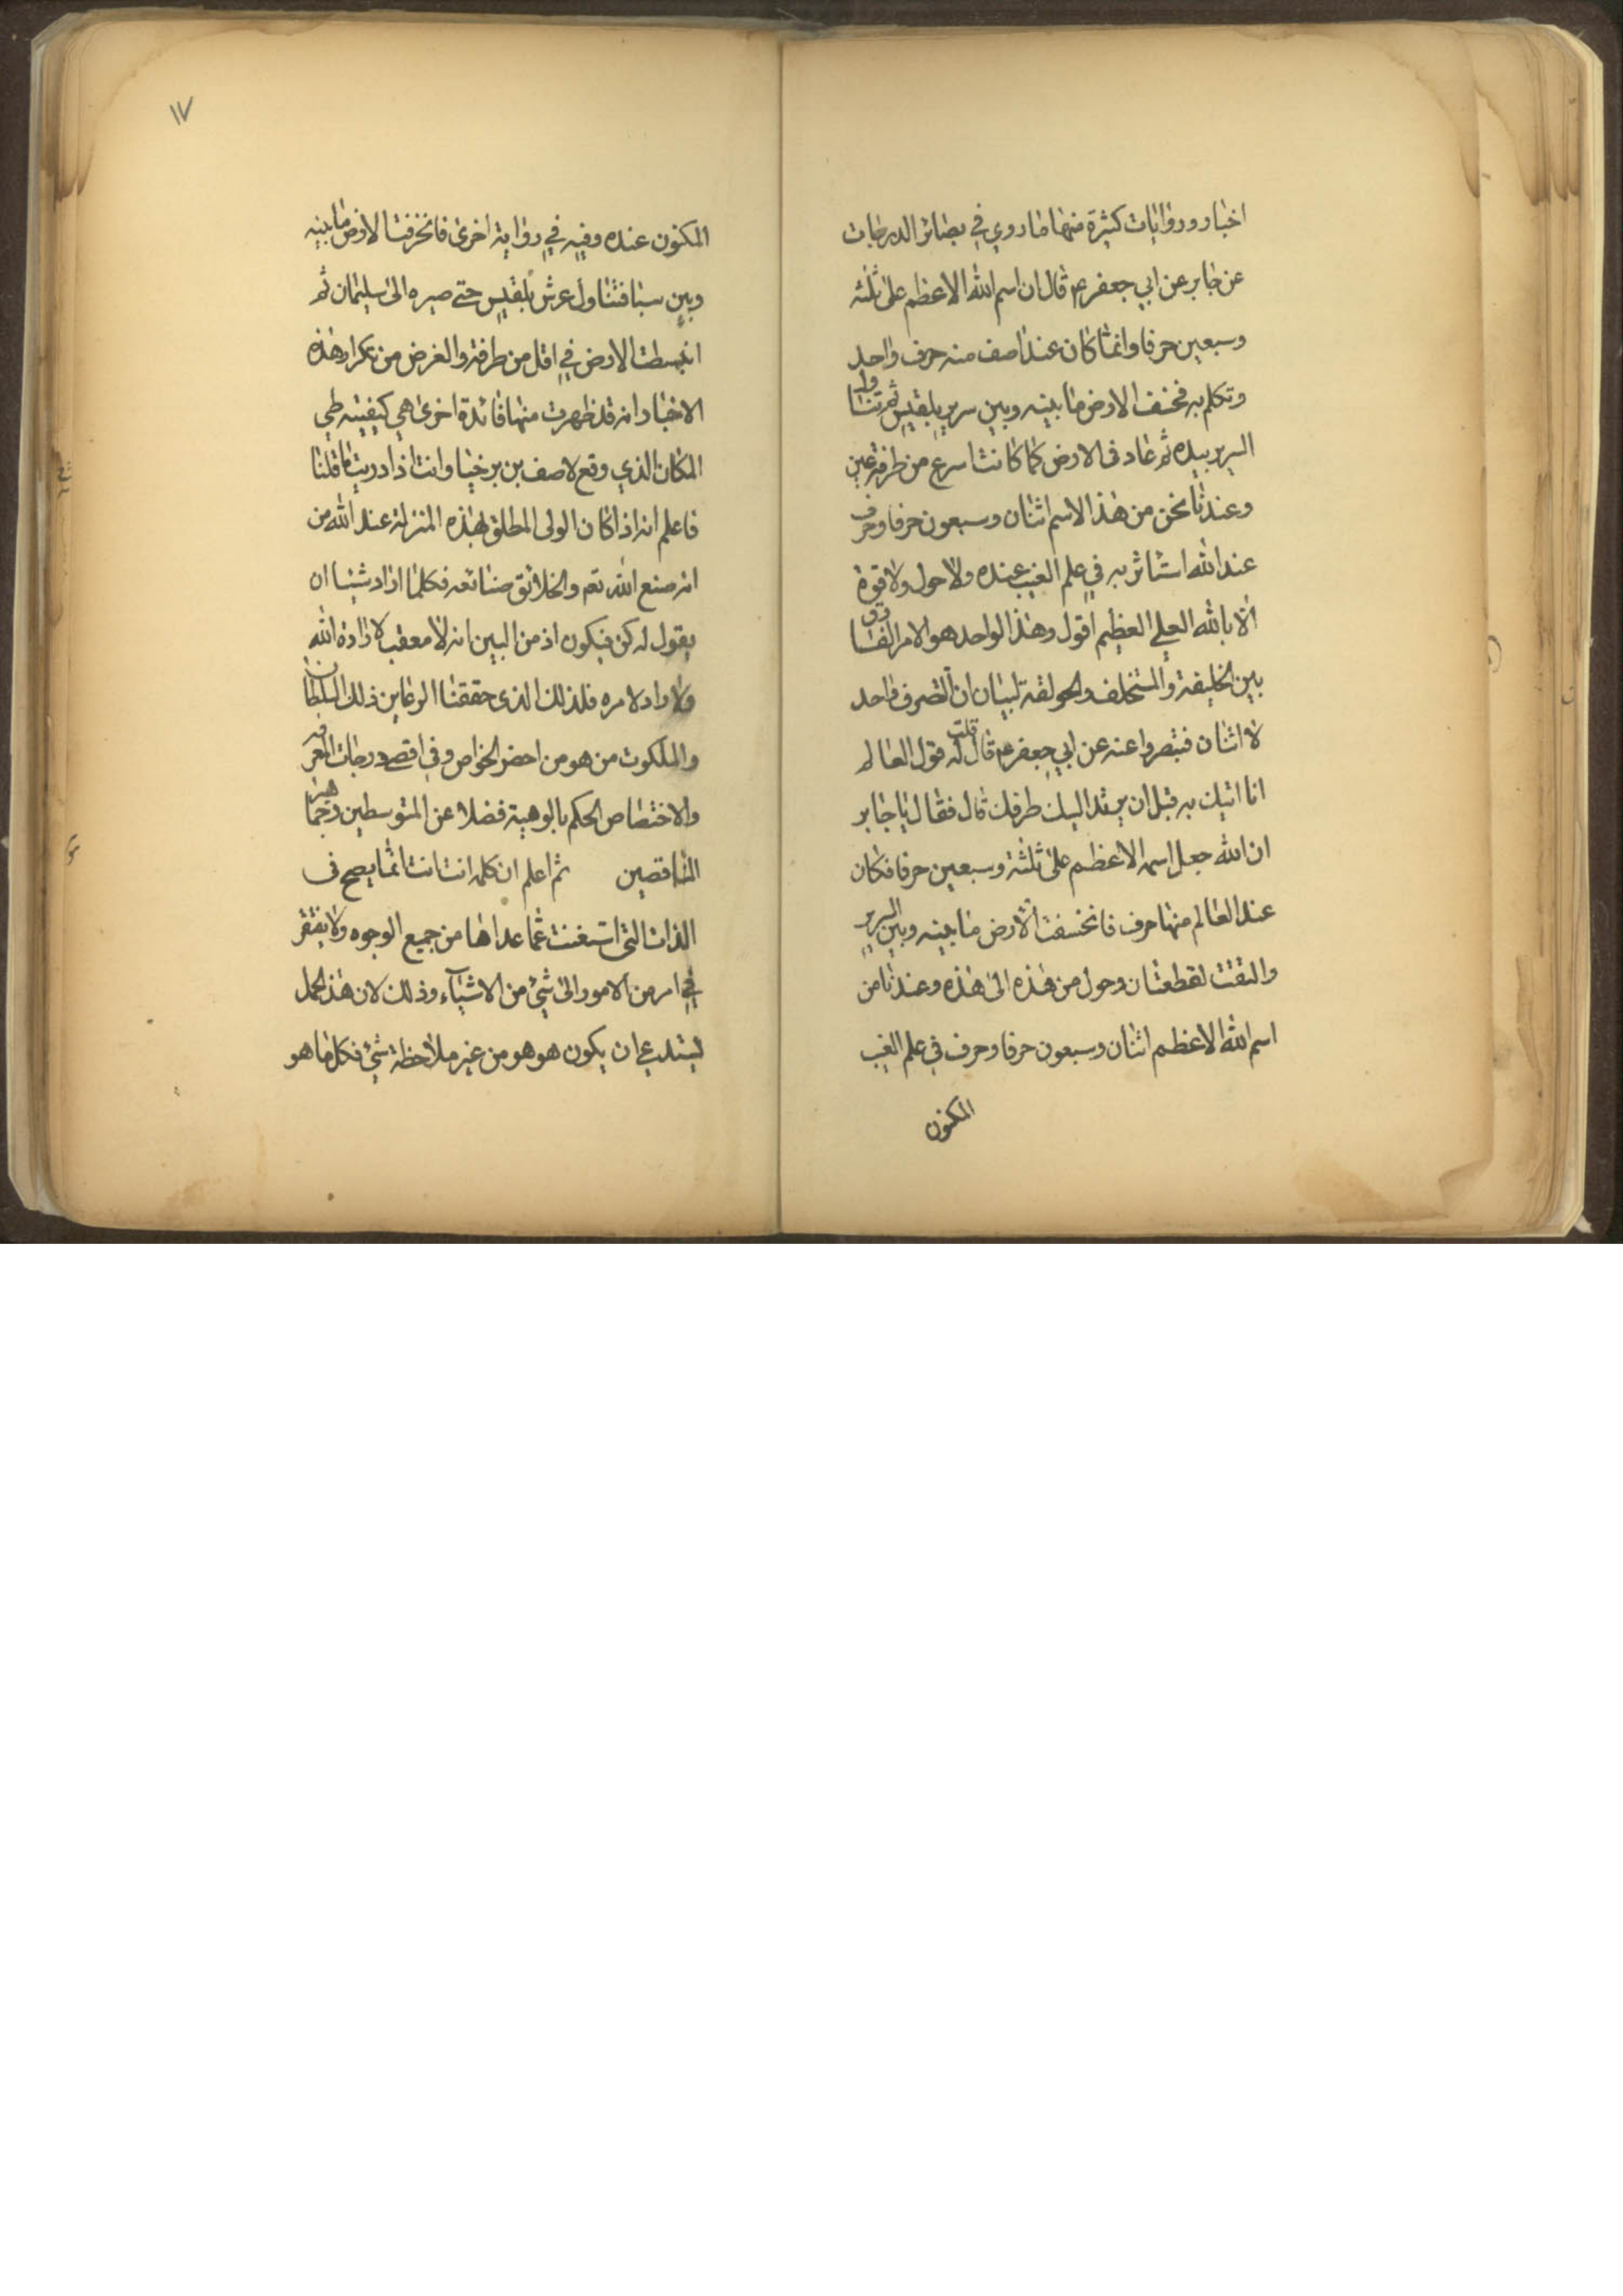 اخبار وروايات كثيرة منها ما روي في بصائر الدرجات
عن جابر عن ابي جعفر ع قال ان اسم الله الاعظم على ثلثه
وسبعين حرفا وانما كان عند اصف منه حرف واحد
وتكلم به فخسف الارض ما بينه وبين سرير بلقيس ثم تناول
السرير بيده ثم عادت الارض كما كانت اسرع من طرفة عين
وعندنا نحن من هذا الاسم اثنان وسبعون حرفا وحرف
عند الله استاثر به في علم الغيب عنده ولا حول ولا قوة
الا بالله العلي العظيم اقول وهذا الواحد هو الامر الفارق
بين الخليفة والمستخلف والحولقة لبيان ان التصرف واحد
لا اثنان فتبصروا عنه عن ابي جعفر ع قال قلت له قول العالم
انا اتيك به قبل ان يرتد اليك طرفك قال فقال يا جابر
ان الله جعل اسمه الاعظم على ثلثة وسبعين حرفا فكان
عند العالم منها حرف فانخسفت الارض ما بينه وبين السرير
والتفت لقطعتان وحول من هذه الى هذه وعندنا من
اسم الله الاعظم اثنان وسبعون حرفا وحرف في علم الغيب
المكنون
١٧
المكنون عنده وفيه في رواية اخرى فانخرقت الارض ما بينه
وبين سبا فتناول عرش بلقيس حتى صيره الى سليمان ثم
انبسطت الارض في اقل من طرفة والغرض من تكرار هذه
الاخبار انه قد ظهرت منها فائدة اخرى هي كيفيته طي
المكان الذي وقع لاصف بن برخيا وانت اذا دريت ما قلنا
فاعلم انه اذا كان الولى المطلق بهذه المنزلة عند الله من
انه صنع الله تع والخلائق صنائعه فكلما اراد شيئا ان
يقول له كن فيكون اذ من البين انه لا معقب لارادة الله
ولا راد لامره فلذلك الذى حققنا الرعاين ذلك السلطان
والملكوت من هو من احضر الخواص وفي اقصى درجات المعرفه
والاختصاص الحكم بالوهية فضلا عن المتوسطين وجماهير
الناقصين ثم اعلم ان كلمه انت انت انما يصح فى
الذات التى استغنت عما عداها من جميع الوجوه ولا يفتقر
في امر من الامور الى شئ من الاشياء وذلك لان هذا الحمل
ليستدعي ان يكون هو هو من غير ملاحظة شئ فكل ما هو